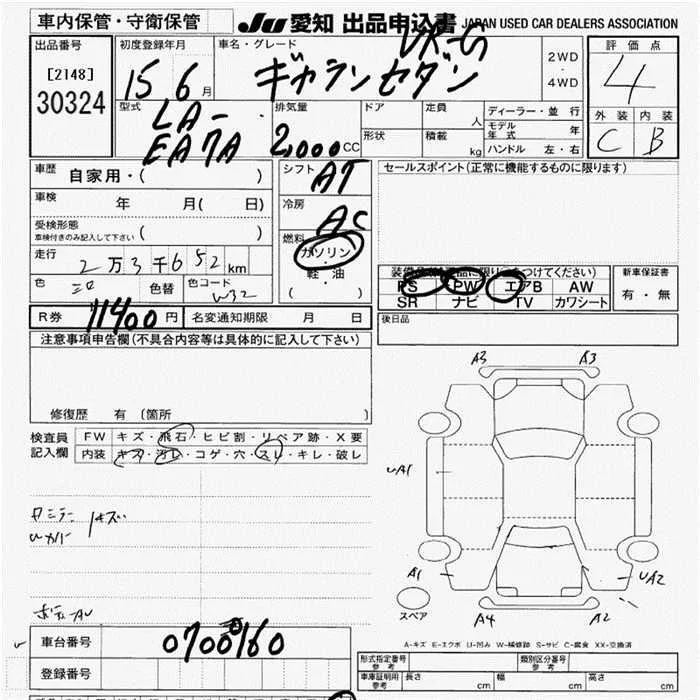 車内保管・守衛保管
Ju 愛知 出品申込書 JAPAN USED CAR DEALERS ASSOCIATION
出品番号
[2148]
30324
初度登録年月
15 6 月
車名・グレード
VR-G
ギャランセダン
2WD
・
4WD
評価点
4
外装 内装
C B
型式
LA-
EA7A
排気量
2,000 CC
ドア
形状
定員
人
積載
kg
ディーラー・並行
モデル
年式 年
ハンドル 左・右
車歴
自家用・( )
車検
年 月( 日)
受検形態
車検付きのみ記入して下さい ( )
走行
2万3千652 km
色
色替
色コード
W32
シフト
AT
冷房
AC
燃料
ガソリン
・
軽・油
( )
セールスポイント(正常に機能するものに限ります)
新車保証書
有・無
PS PW エアB AW
SR ナビ TV カワシート
R券 11400 円
名変通知期限 月 日
後日品
注意事項申告欄(不具合内容等は具体的に記入して下さい)
修復歴 有 〔箇所
検査員
記入欄
FW キズ・飛石・ヒビ割・リペア跡・X要
内装 キズ・汚レ・コゲ・穴・スレ・キレ・破レ
A3 A3
UA1
A1 UA2
スペア
A4 A2
A-キズ E-エクボ U-凹み W-補修跡 S-サビ C-腐食 XX-交換済
車台番号
0700160
登録番号
形式指定番号
参考
類別区分番号
参考
車庫証明用
参考
長さ cm 幅 cm 高さ cm